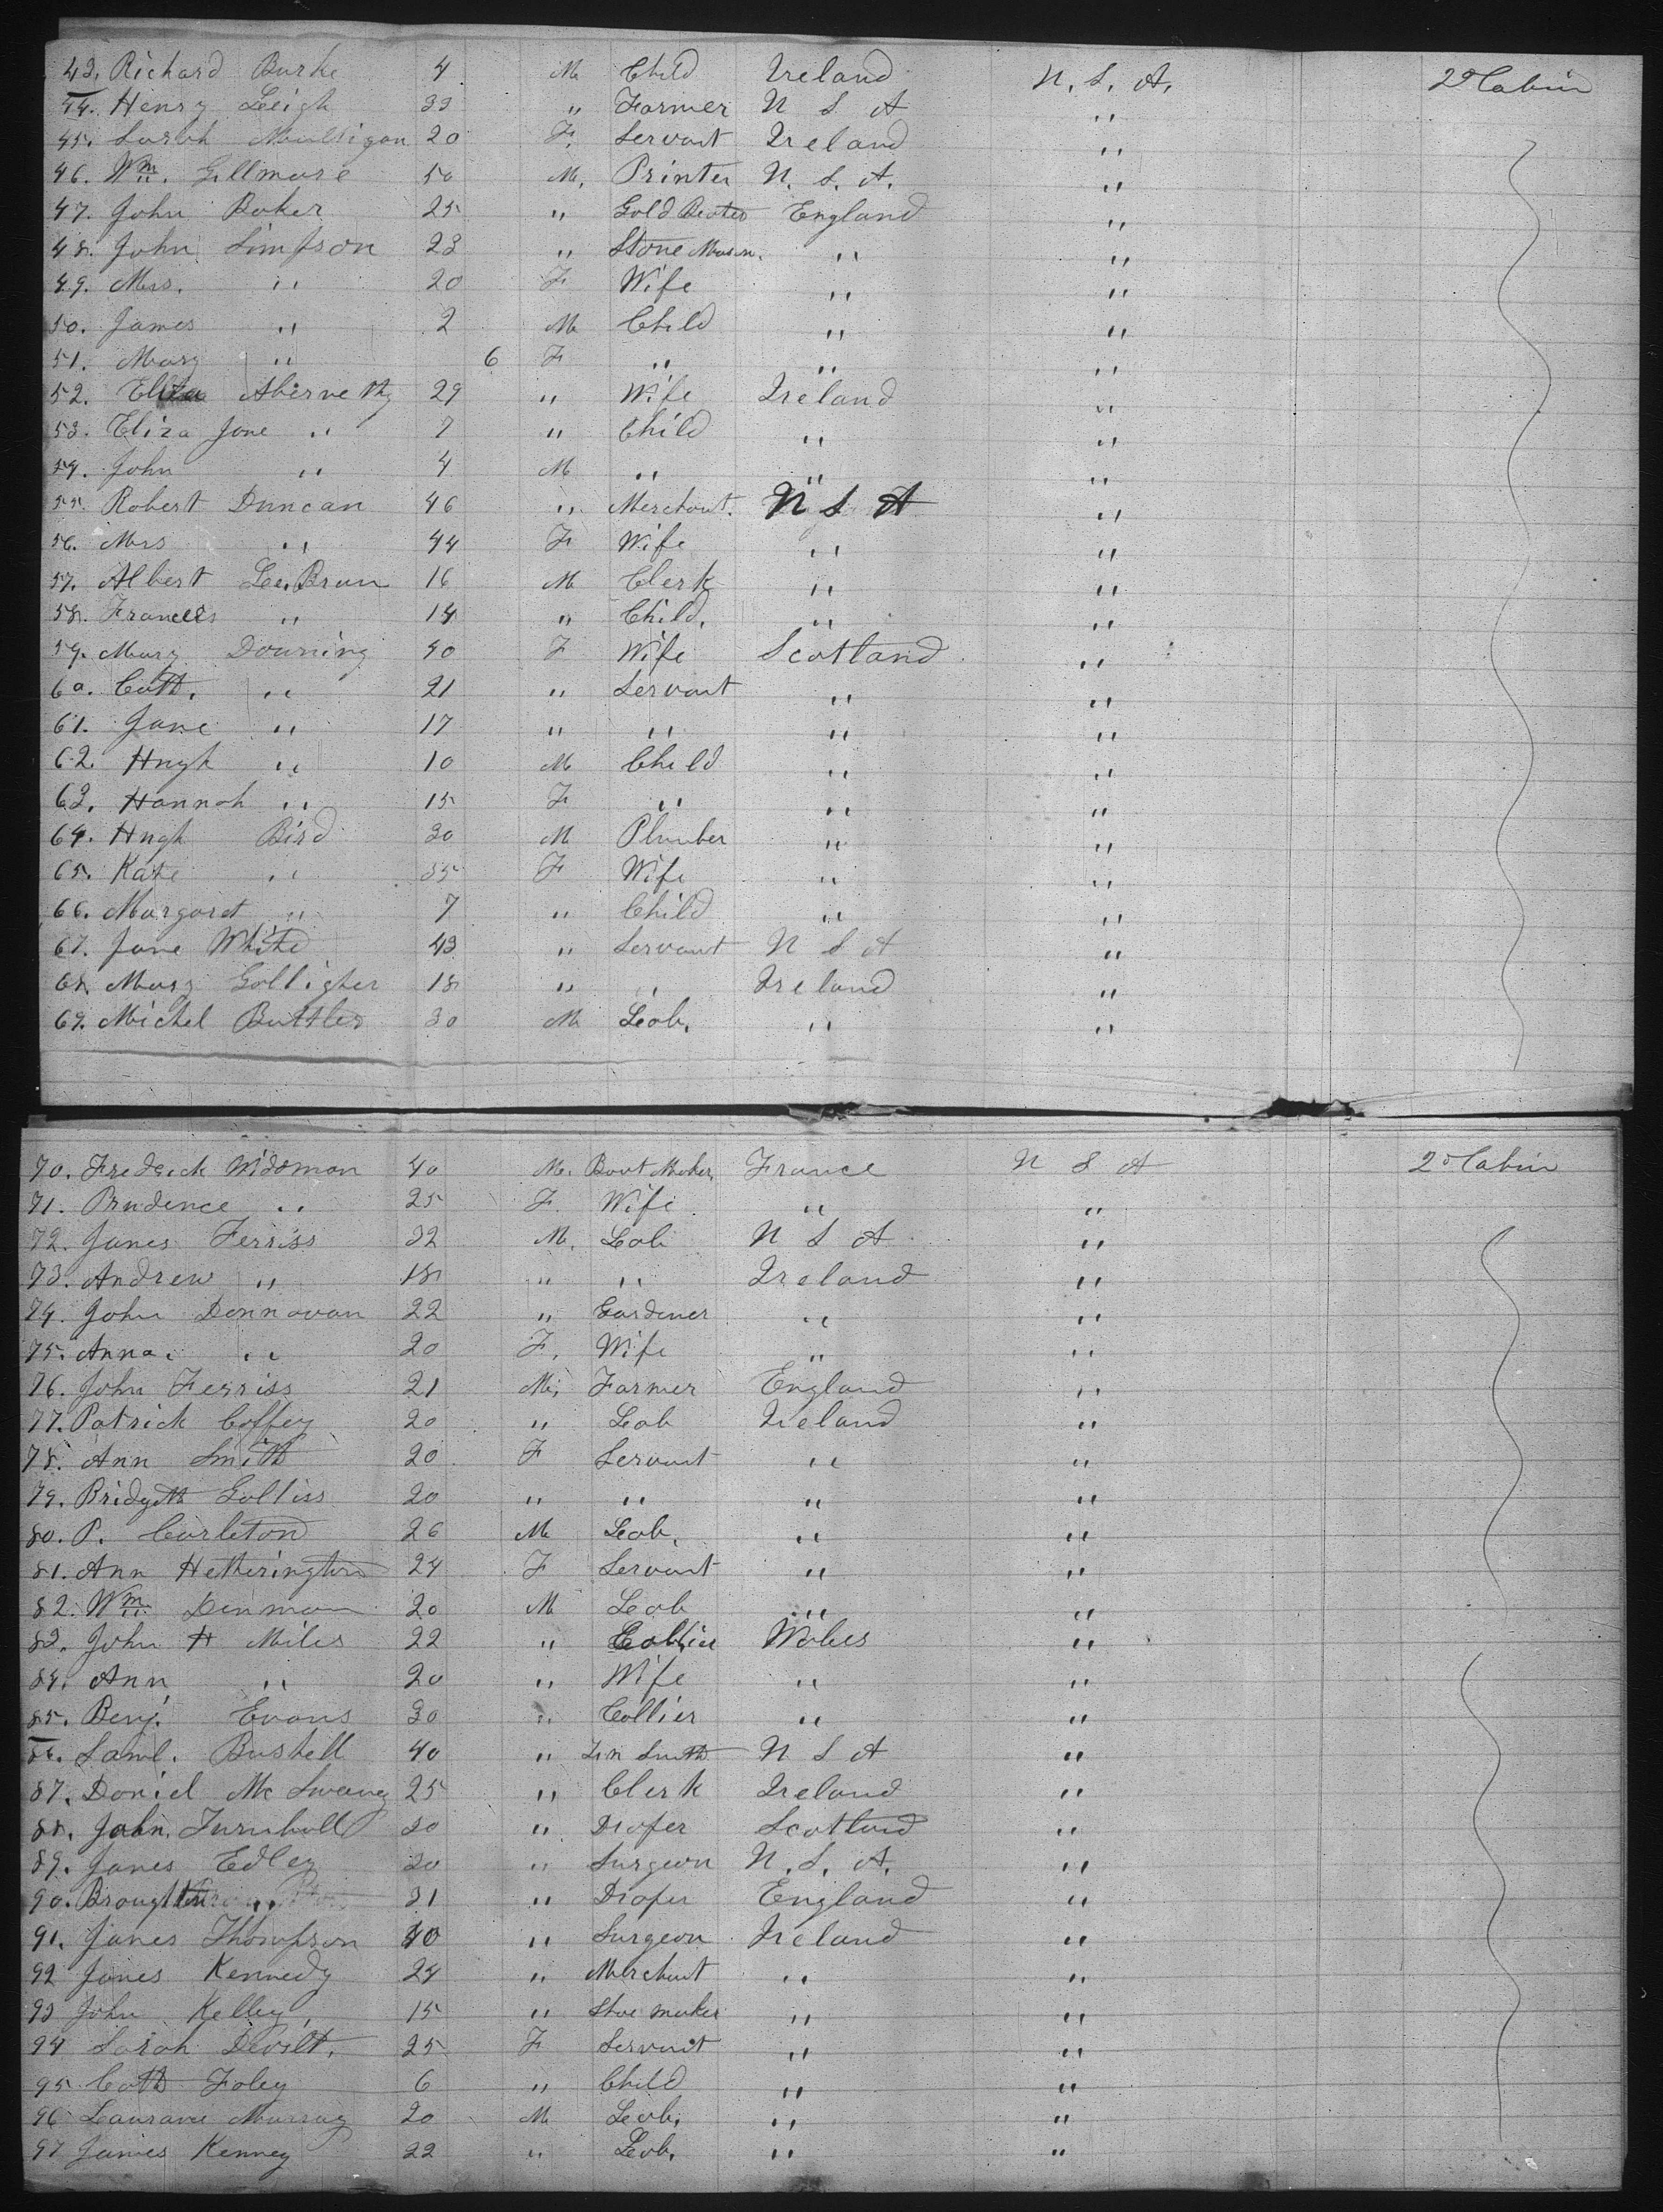 43. Richard Burke 4 M Child Ireland U. S. A. 2d Cabin
44. Henry Leigh 33 " Farmer U S A "
45. Sarah Mulligan 20 F. Servant Ireland "
46. Wm. Gillmore 50 M. Printer U. S. A. "
47. John Baker 25 " Gold Beater England "
48. John Simpson 23 " Stone Mason. " "
49. Mrs. " 20 F Wife " "
50. James " 2 M Child " "
51. Mary " 6 F " " "
52. Eliza Abernethy 29 " Wife Ireland "
53. Eliza Jane " 7 " Child " "
54. John " 4 M " " "
55. Robert Duncan 46 " Merchant. U S A "
56. Mrs " 44 F Wife " "
57. Albert Le Brun 16 M Clerk " "
58. Frances " 14 " Child. " "
59. Mary Downing 40 F Wife Scotland "
60. Cath. " 21 " Servant " "
61. Jane " 17 " " " "
62. Hugh " 10 M Child " "
63. Hannah " 15 F " " "
64. Hugh Bird 30 M Plumber " "
65. Kate " 35 F Wife " "
66. Margaret " 7 " Child " "
67. Jane White 43 " Servant U S A "
68. Mary Golligher 18 " " Ireland "
69. Michel Buttler 30 M Leab. " "
70. Fredrick Widsman 40 M. Boot Maker. France U S A 2d Cabin
71. Prudence " 25 F. Wife " "
72. James Ferriss 32 M. Leab U S A "
73. Andrew " 18 " " Ireland "
74. John Donnavan 22 " Gardener " "
75. Anna. " 20 F. Wife " "
76. John Ferriss 21 M. Farmer England "
77. Patrick Coffey 20 " Leab Ireland "
78. Ann Smith 20 F Servant " "
79. Bridgett Golliss 20 " " " "
80. P. Carleton 26 M Leab. " "
81. Ann Hetherington 24 F Servant " "
82. Wm Denman 20 M Leab " "
83. John H Miles 22 " Collier Wales "
84. Ann " 20 " Wife " "
85. Benj. Evans 30 " Collier " "
86. Saml. Bushell 40 " Tin Smith U S A "
87. Daniel McSwaney 25 " Clerk Ireland "
88. John Turnbull 30 " Draper Scotland "
89. James Edley 30 " Surgeon U. S. A. "
90. Broughton " 31 " Draper England "
91. James Thompson 40 " Surgeon Ireland "
92 James Kennedy 24 " Merchant " "
93 John Kelley 15 " Shoe maker " "
94 Sarah Devilt. 25 F Servant " "
95 Cath Foley 6 " Child " "
96 Laurance Murray 20 M Leab. " "
97 James Kenney 22 " Leab. " "